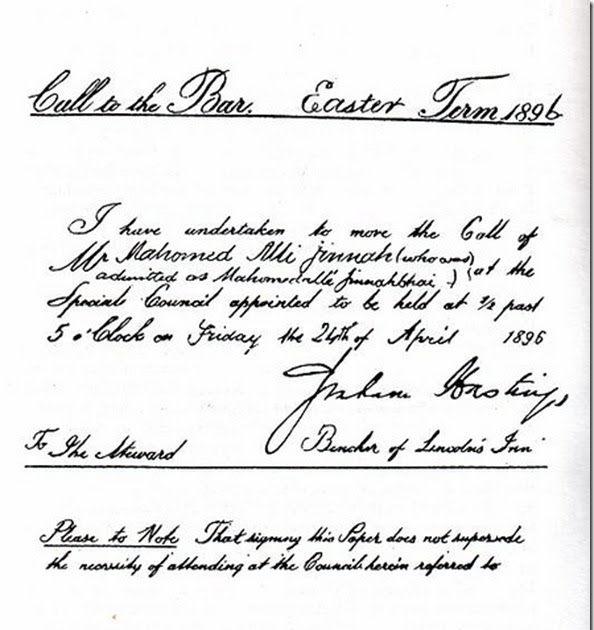 Call to the Bar. Easter Term 1896
I have undertaken to move the Call of
Mr Mahomed Alli Jinnah (who was
admitted as Mahomedalli Jinnahbhai -) at the
Special Council appointed to be held at ½ past
5 o'Clock on Friday the 24th of April 1896
Graham Hastings
To The Steward Bencher of Lincoln's Inn
Please to Note That signing this Paper does not supersede
the necessity of attending at the Council herein referred to